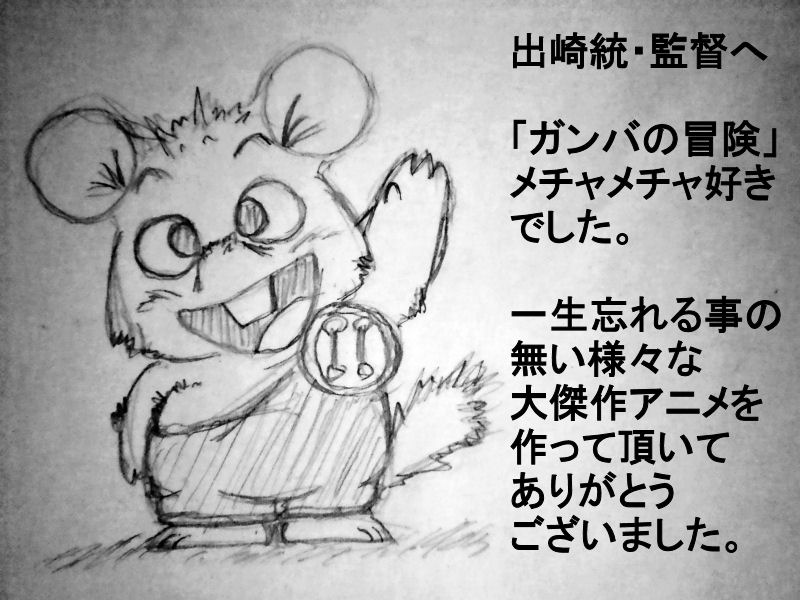 出崎統・監督へ
「ガンバの冒険」
メチャメチャ好き
でした。
一生忘れる事の
無い様々な
大傑作アニメを
作って頂いて
ありがとう
ございました。